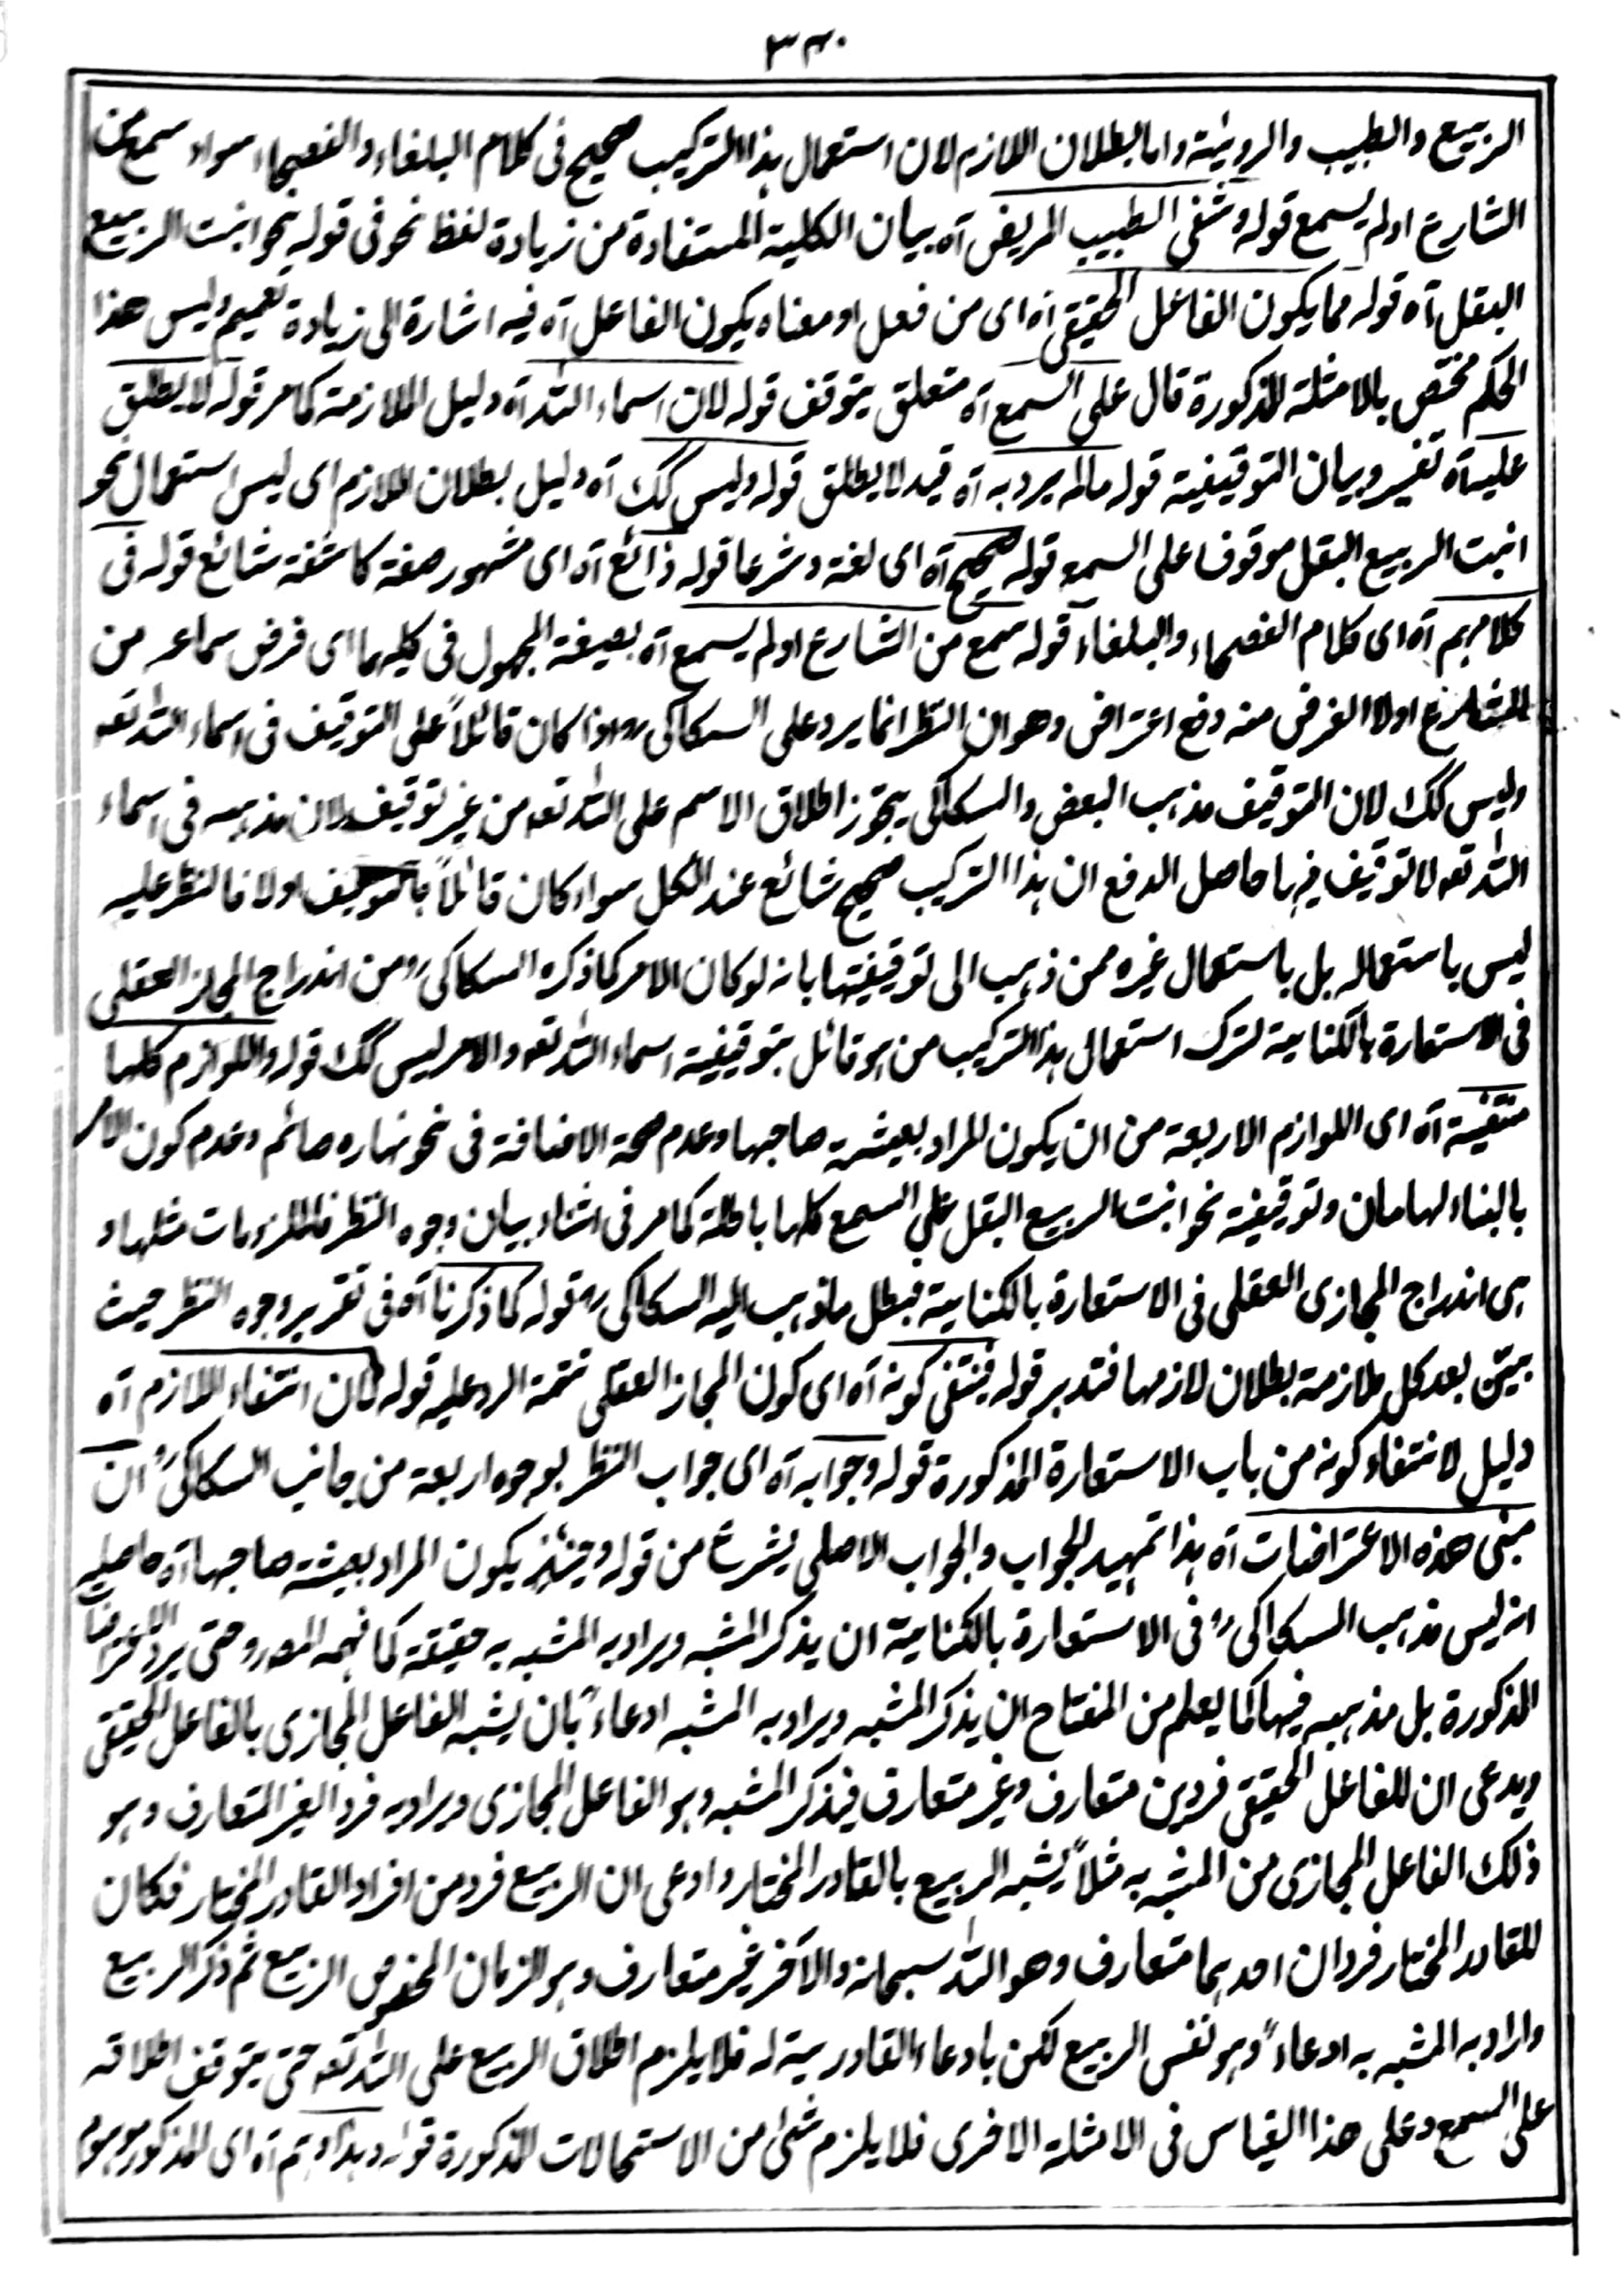 ٣٣٠
الربيع والطبيب والرؤية واما بطلان اللازم لان استعمال هذا التركيب صحيح فى كلام البلغاء والفصحاء سواء سمع من
الشارع اولم يسمع قوله وشفى الطبيب المريض آه بيان الكلية المستفادة من زيادة لفظ نحو فى قوله نحو انبت الربيع
البقل آه قوله مما يكون الفاعل الحقيقى آه اى من فعل او معناه يكون الفاعل آه فيه اشارة الى زيادة تعميم وليس هذا
الحكم مختص بالامثلة المذكورة قال على السمع آه متعلق يتوقف قوله لان اسماء الله آه دليل الملازمة كما مر قوله لا يطلق
عليه آه تفسير وبيان التوقيفية قوله مالم يرد به آه قيد لا يطلق قوله وليس كك آه دليل بطلان اللازم اى ليس استعمال نحو
انبت الربيع البقل موقوفا على السمع قوله صحيح آه اى لغة وشرعا قوله ذائع آه اى مشهور صفة كاشفة شائع قوله فى
كلامهم آه اى كلام الفصحاء والبلغاء قوله سمع من الشارع اولم يسمع آه بصيغة المجهول فى كليهما اى فرض سماعه من
الشارع اولا الغرض منه دفع اعتراض وهو ان النظر انما يرد على السكاكى رہ اذا كان قائلاً على التوقيف فى اسماء الله تعہ
وليس كك لان التوقيف مذهب البعض والسكاكى يجوز اطلاق الاسم على الله تعہ من غير توقيف لان مذهبه فى اسماء
الله تعہ لا توقيف فيها حاصل الدفع ان هذا التركيب صحيح شائع عند الكل سواء كان قائلاً بالتوقيف اولا فالنظر عليه
ليس باستعماله بل باستعمال غيره ممن ذهب الى توقيفيتها بانه لو كان الامر كما ذكره السكاكى رہ من اندراج المجاز العقلى
فى الاستعارة بالكناية لترك استعمال هذا التركيب من هو قائل بتوقيفية اسماء الله تعہ والامر ليس كك قوله واللوازم كلها
منتفية آه اى اللوازم الاربعة من ان يكون المراد بعيشة صاحبها وعدم صحة الاضافة فى نحو نهاره صائم وعدم كون الامر
بالبناء لهامان وتوقيفية نحو انبت الربيع البقل على السمع كلها باطلة كما مر فى اثناء بيان وجوه النظر فالملزومات مثلها و
هى اندراج المجازى العقلى فى الاستعارة بالكناية فبطل ما ذهب اليه السكاكى رہ قوله كما ذكرنا آه فى تقرير وجوه النظر حيث
بين بعد كل ملازمة بطلان لازمها فتدبر قوله فينتفى كونه آه اى كون المجاز العقلى تتمة الرد عليه قوله لان انتفاء اللازم آه
دليل لانتفاء كونه من باب الاستعارة المذكورة قوله وجوابه آه اى جواب النظر بوجوه اربعة من جانب السكاكى رہ ان
مبنى هذه الاعتراضات آه هذا تمهيد للجواب والجواب الاصلى يشرع من قوله وحينئذ يكون المراد بعيشة صاحبها آه حاصله
انه ليس مذهب السكاكى رہ فى الاستعارة بالكناية ان يذكر المشبه ويراد به المشبه به حقيقة كما فهمه المص رہ حتى يرد الاعتراضات
المذكورة بل مذهبه فيها كما يعلم من المفتاح ان يذكر المشبه ويراد به المشبه ادعاءً بان يشبه الفاعل المجازى بالفاعل الحقيقى
ويدعى ان للفاعل الحقيقى فردين متعارف وغير متعارف فيذكر المشبه وهو الفاعل المجازى ويراد به فرد الغير المتعارف وهو
ذلك الفاعل المجازى من المشبه به مثلاً يشبه الربيع بالقادر المختار وادعى ان الربيع فرد من افراد القادر المختار فكان
للقادر المختار فردان احدهما متعارف وهو الله سبحانه والآخر غير متعارف وهو الزمان المخصوص الربيع ثم ذكر الربيع
واراد به المشبه به ادعاءً وهو نفس الربيع لكن بادعاء القادرية له فلا يلزم اطلاق الربيع على الله تعہ حتى يتوقف اطلاقه
على السمع وعلى هذا القياس فى الامثلة الاخرى فلا يلزم شئ من الاستحالات المذكورة قوله وهذا وهم آه اى المذكور موهوم